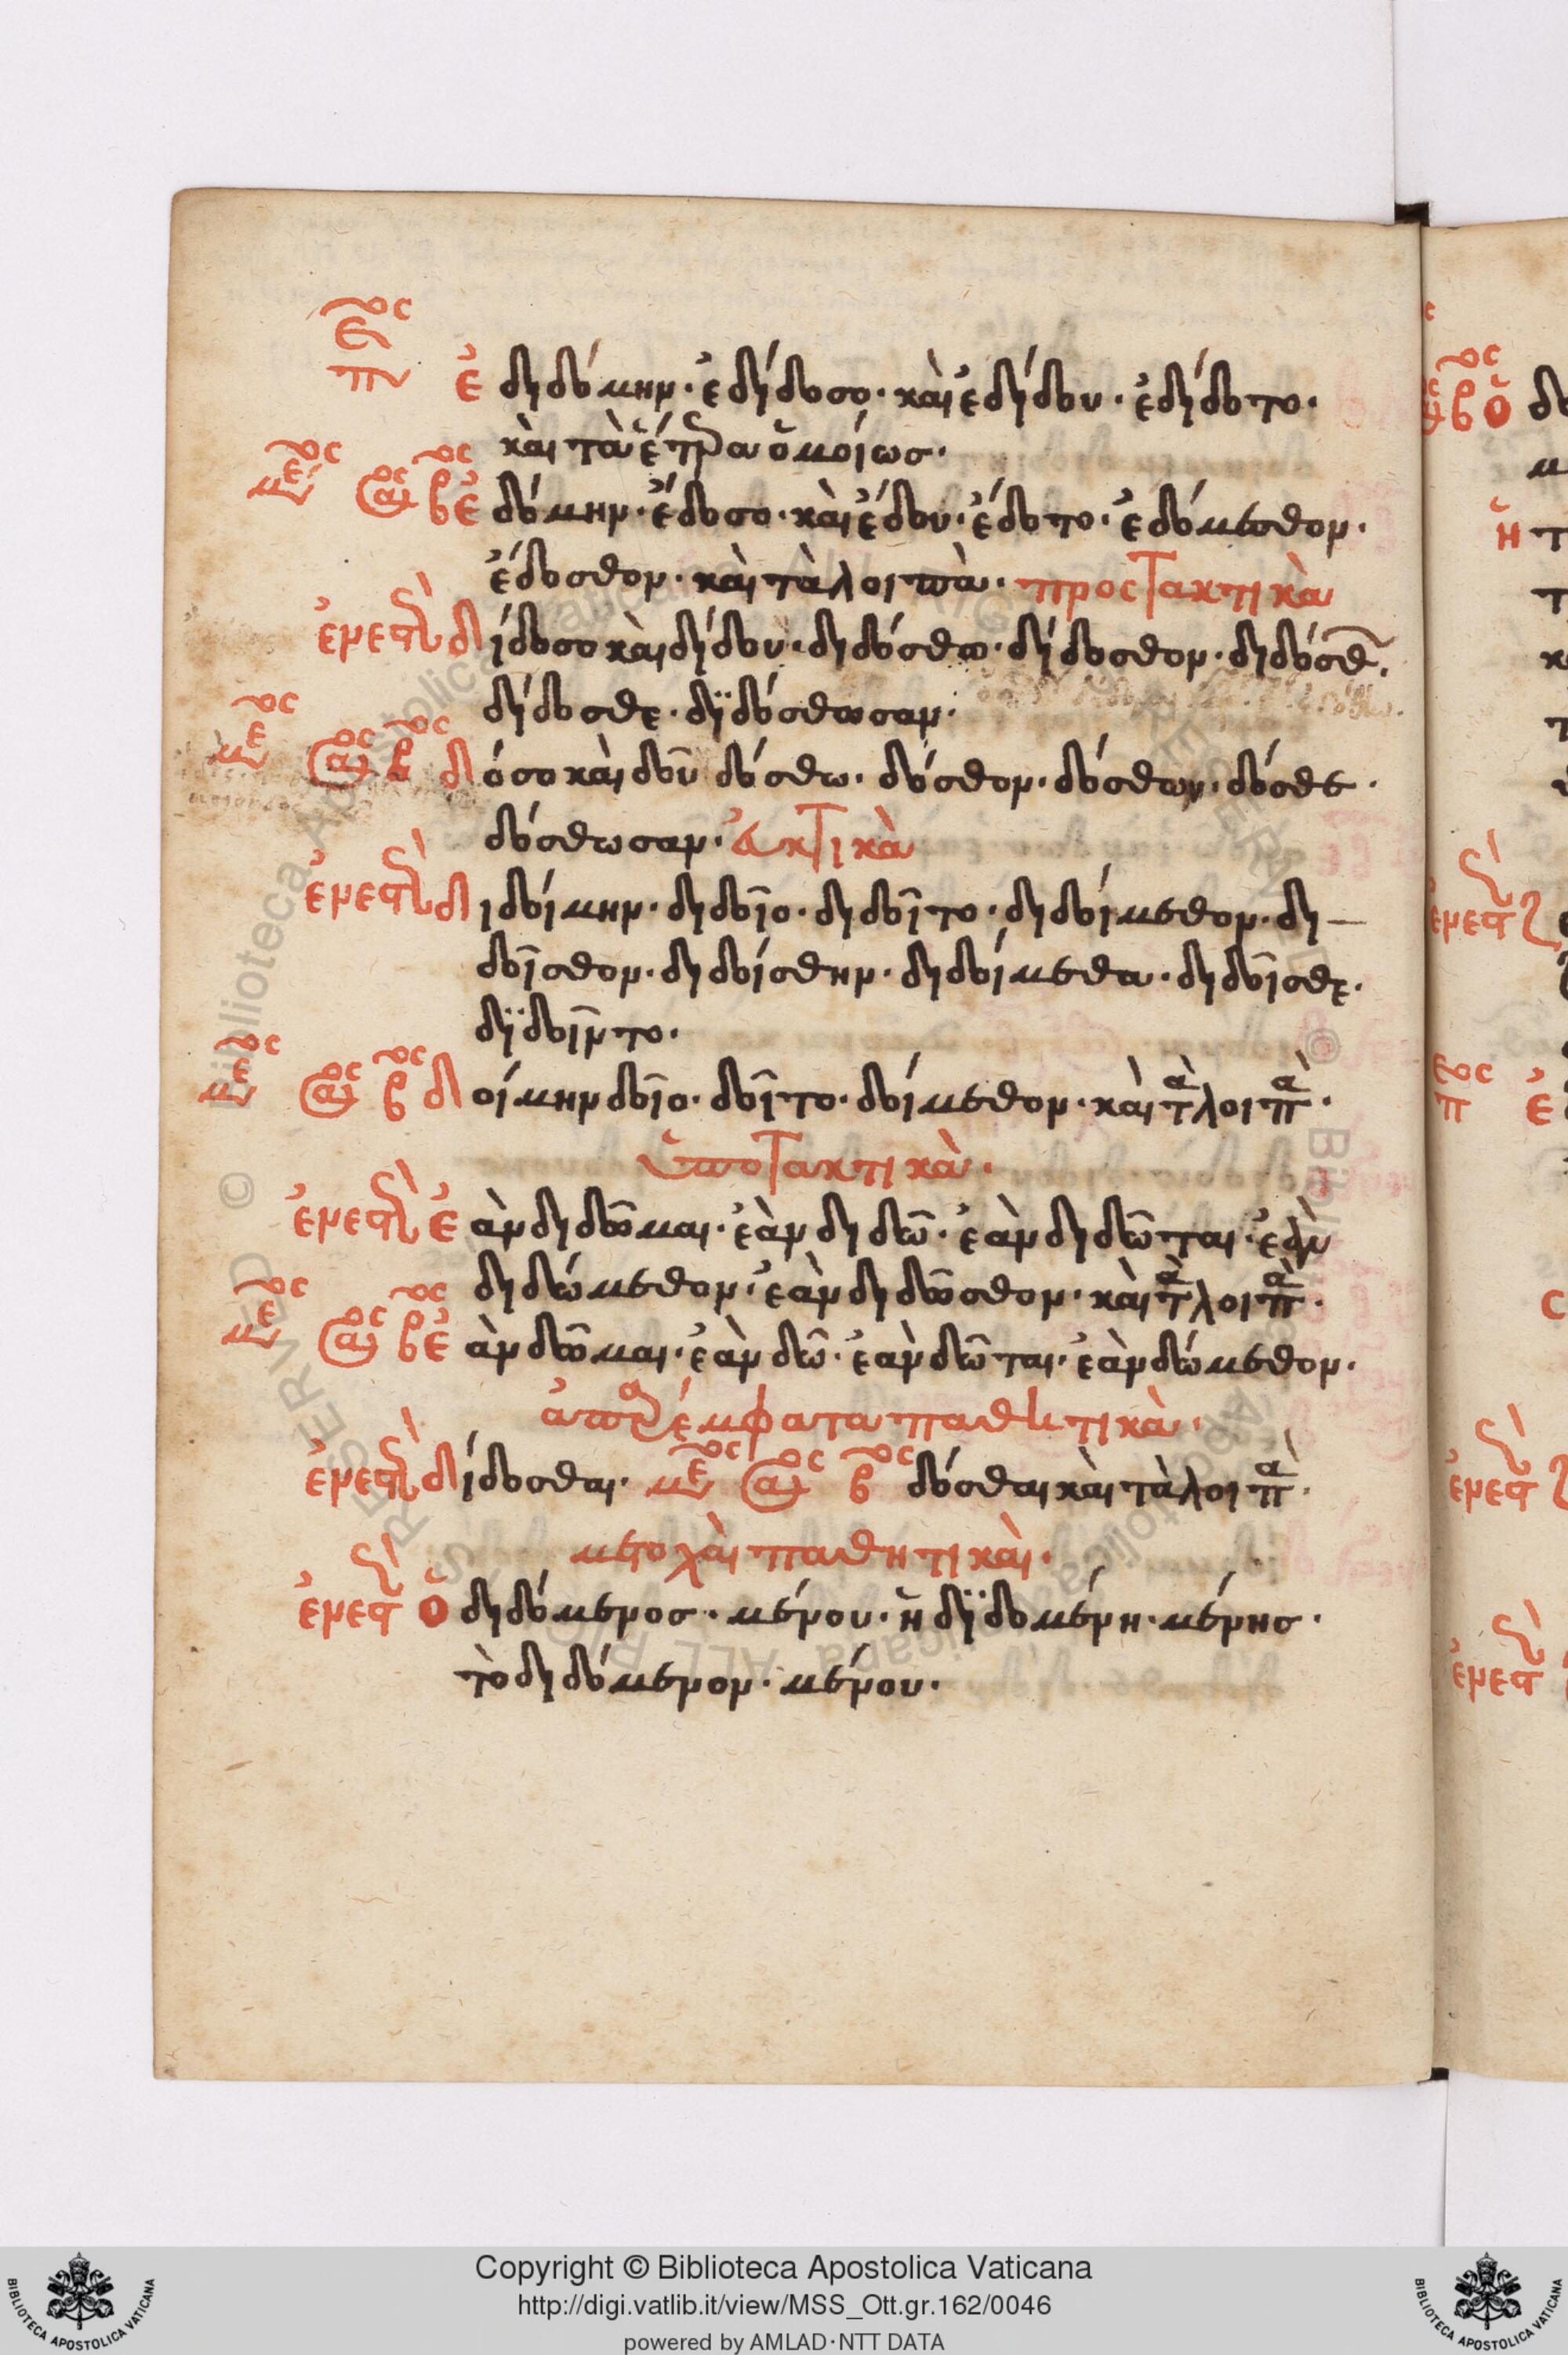 ἐδιδόμην· ἐδίδοσο· καὶ ἐδίδου· ἐδίδοτο·
καὶ τὰ ἕτερα ὁμοίως·
ἐδόμην· ἔδοσο· καὶ ἔδου· ἔδοτο· ἐδόμεσθον·
ἔδοσθον· καὶ τὰ λοιπὰ· προστακτικὰ
ἐνεστ δίδοσο καὶ δίδου· διδόσθω· δίδοσθον· διδόσθ·
δίδοσθε· διδόσθωσαν·
δόσο καὶ δοῦ δόσθω· δόσθον· δόσθων· δόσθε·
δόσθωσαν· εὐκτικὰ
ἐνεστ διδοίμην· διδοῖο· διδοῖτο· διδοίμεθον· δι
δοῖσθον· διδοίσθην· διδοίμεθα· διδοῖσθε·
διδοῖντο·
δοίμην δοῖο· δοῖτο· δοίμεθον· καὶ τὰ λοιπὰ·
ὑποτακτικὰ·
ἐνεστ ἐὰν διδῶμαι· ἐὰν διδῶ· ἐὰν διδῶται· ἐὰν
διδώμεθον· ἐὰν διδῶσθον· καὶ τὰ λοιπὰ·
ἐὰν δῶμαι· ἐὰν δῶ· ἐὰν δῶται· ἐὰν δώμεθον·
ἀπαρέμφατα παθητικὰ·
ἐνεστ δίδοσθαι· δόσθαι καὶ τὰ λοιπὰ·
μετοχαὶ παθητικαὶ·
ἐνεστ ὁ διδόμενος· μένου· ἡ διδομένη· μένης·
τὸ διδόμενον· μένου·
Copyright © Biblioteca Apostolica Vaticana
http://digi.vatlib.it/view/MSS_Ott.gr.162/0046
powered by AMLAD·NTT DATA
BIBLIOTECA APOSTOLICA VATICANA
BIBLIOTECA APOSTOLICA VATICANA